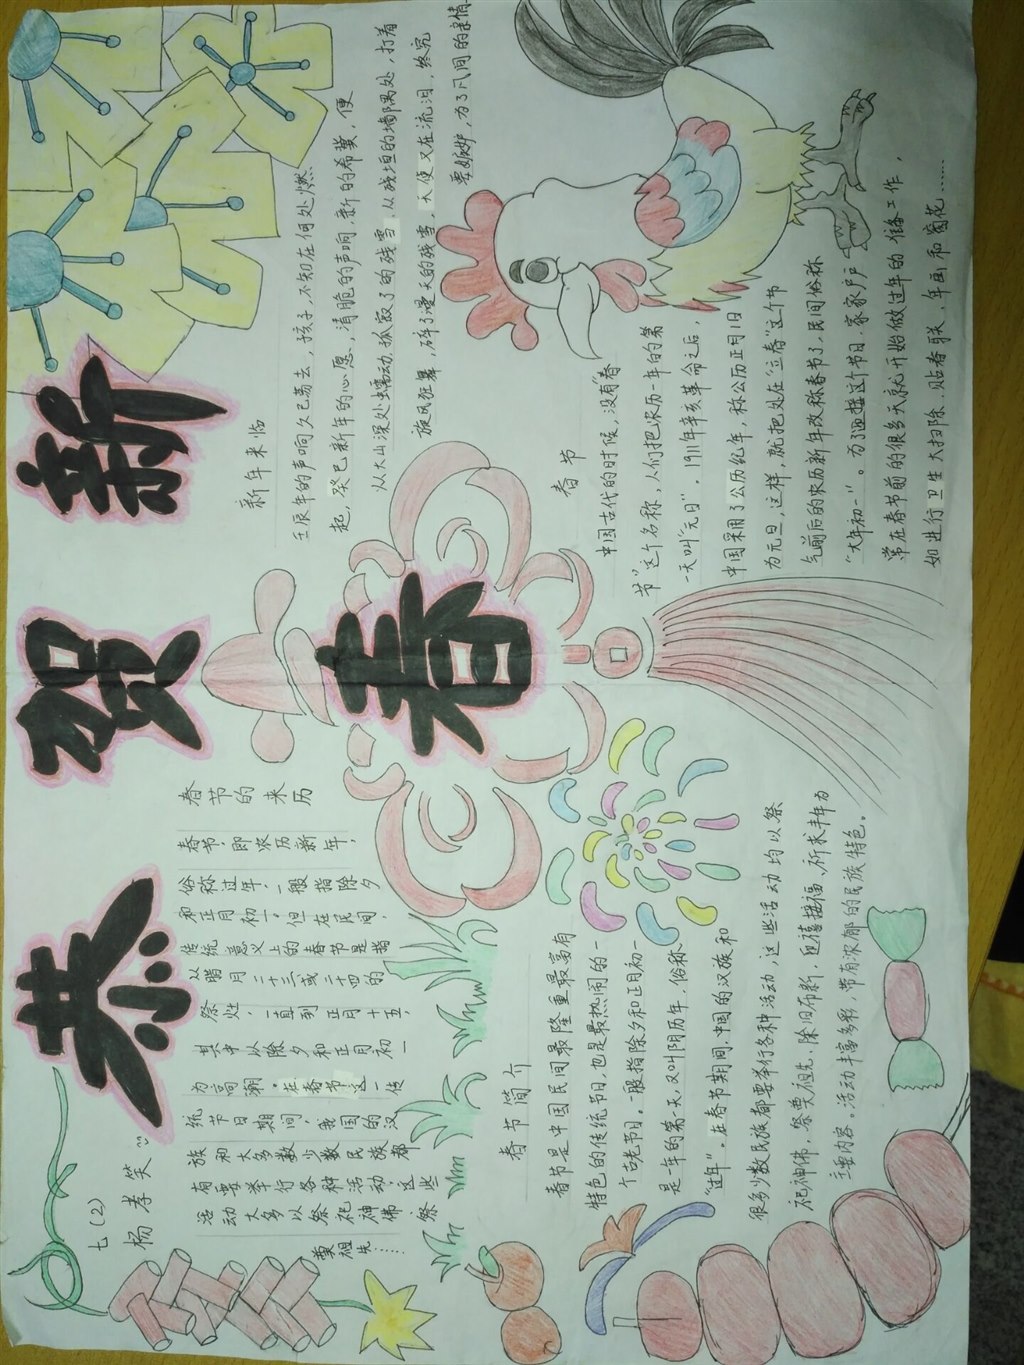 恭贺新春
七(2)
杨孝笑
春节的来历
春节，即农历新年，
俗称过年，一般指除夕
和正月初一。但在民间，
传统意义上的春节是指
从腊月二十三或二十四的
祭灶，一直到正月十五，
其中以除夕和正月初一
为高潮。在春节这一传
统节日期间，我国的汉
族和大多数少数民族都
有要举行各种活动，这些
活动大多以祭祀神佛、祭
奠祖先……
新年来临
壬辰年的声响久已荡去，孩子，不知在何处燃
起，癸巳新年的心愿，清脆的声响，新的希冀，便
从大山深处蠕动，孤寂了的残雪，从残垣的墙隅处，打着
旋风狂舞，碎了漫天的残雪，天便又在流泪，终究
要嫉妒，为了人间的亲情
春节
中国古代的时候，没有“春
节”这个名称，人们把农历一年的第
一天叫“元日”，1911年辛亥革命之后，
中国采用了公历纪年，称公历正月1日
为元旦，这样，就把处在“立春”这个节
气前后的农历新年改称春节了，民间俗称
“大年初一”。为了迎接这个节日，家家户户
常在春节前的很多天就开始做过年的准备工作，
如进行卫生大扫除，贴春联、年画和窗花……
春节简介
春节是中国民间最隆重最富有
特色的传统节日，也是最热闹的一
个古老节日。一般指除夕和正月初一
是一年的第一天，又叫阴历年，俗称
“过年”。在春节期间，中国的汉族和
很多少数民族都要举行各种活动，这些活动均以祭
祀神佛，祭奠祖先，除旧布新，迎禧接福，祈求丰年为
主要内容。活动丰富多彩，带有浓郁的民族特色。